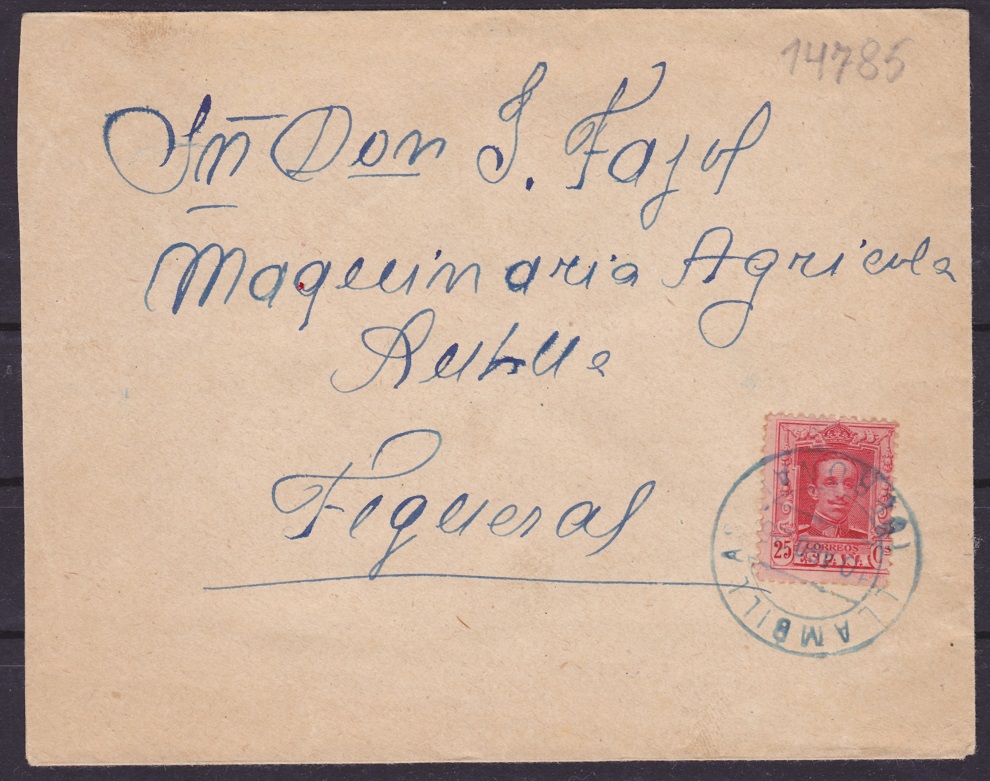 14785
Sñ Don J. Fajol
Maquinaria Agricola
Figueras
25 CORREOS Cs
ESPAÑA
LLAMBILLAS